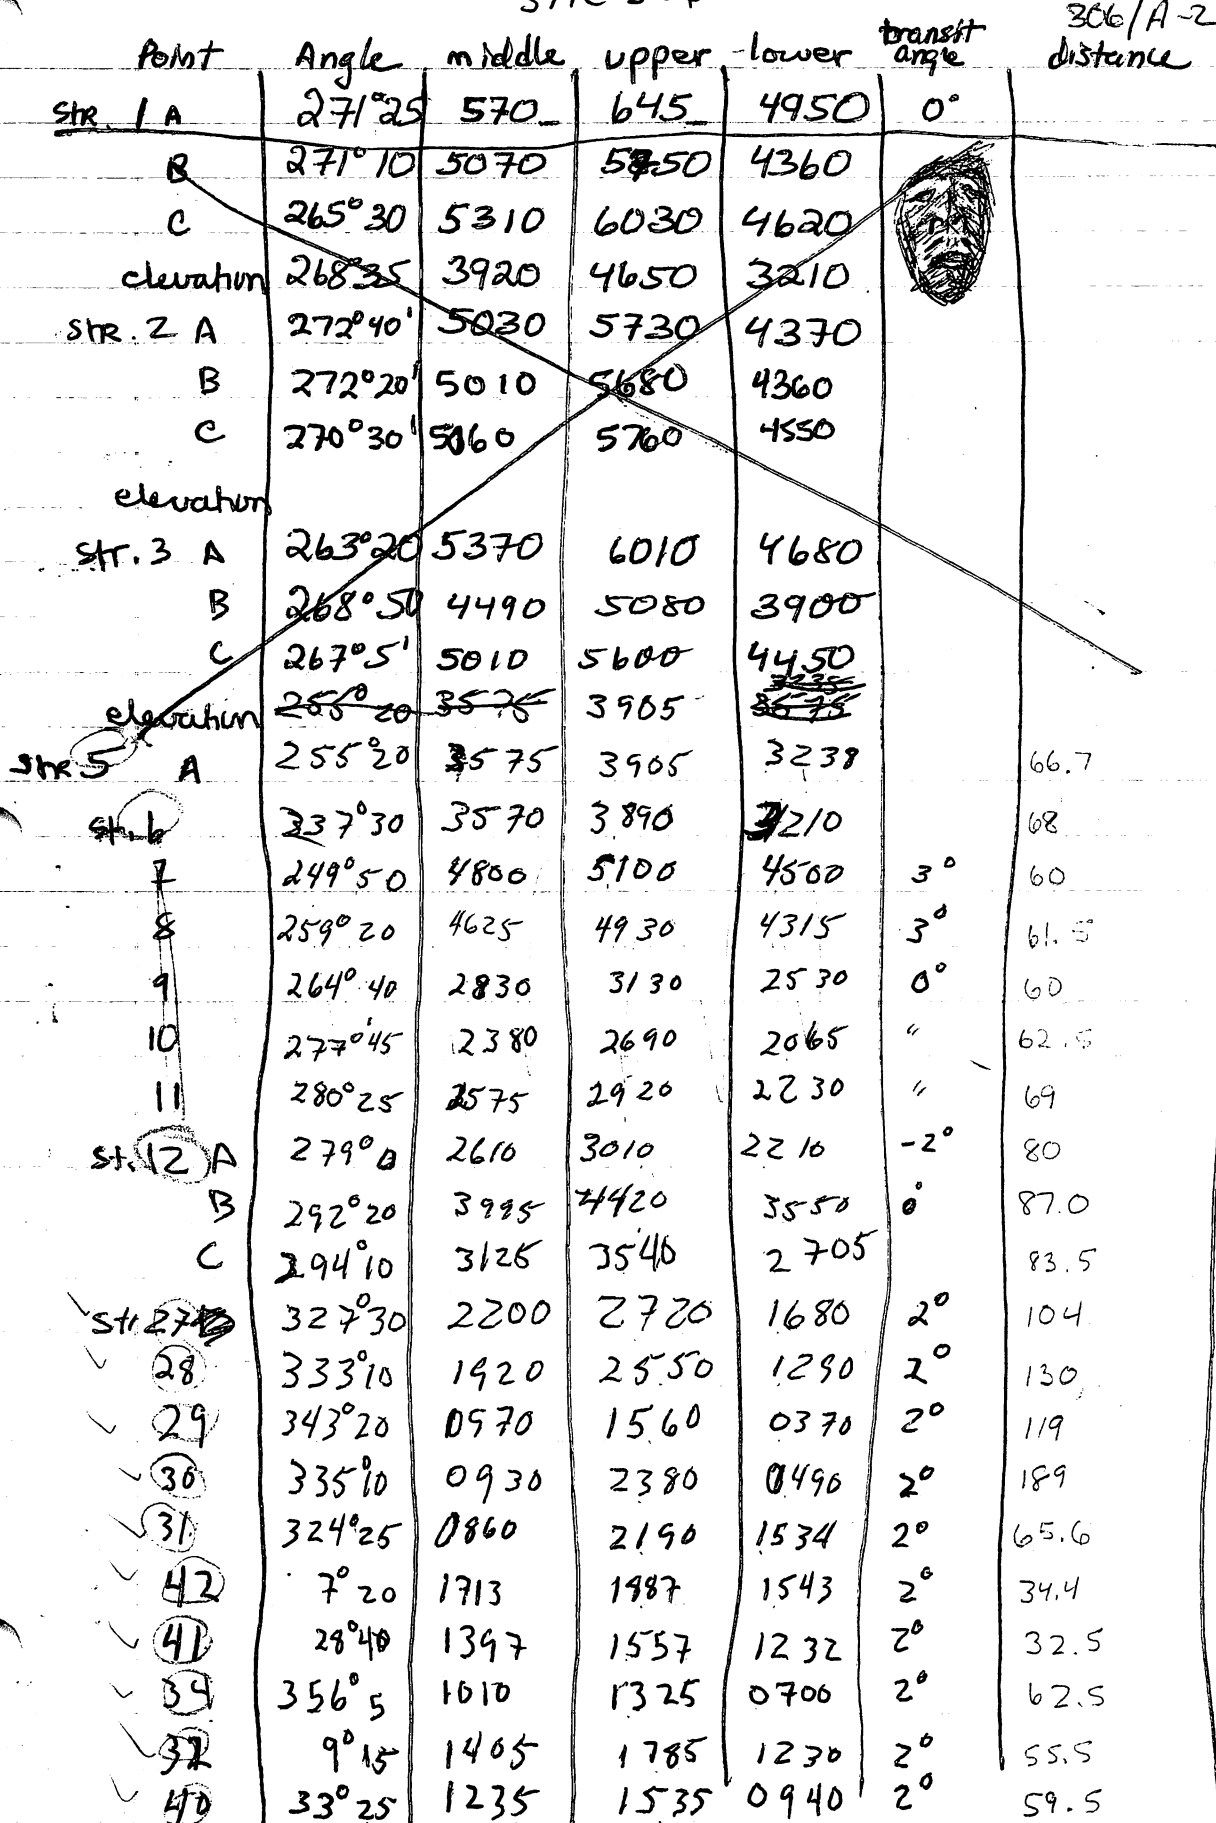 306/A-2
Point Angle middle upper lower transit angle distance
Str. 1 A 271°25 570_ 645_ 4950 0°
B 271°10 5070 5750 4360
C 265°30 5310 6030 4620
elevation 268°35 3920 4650 3210
Str. 2 A 272°40' 5030 5730 4370
B 272°20' 5010 5680 4360
C 270°30' 5060 5760 4550
elevation
Str. 3 A 263°20 5370 6010 4680
B 268°50 4490 5080 3900
C 267°5' 5010 5600 4450
elevation 255°20 3575 3905 3575
Str 5 A 255°20 3575 3905 3238 66.7
St. 6 337°30 3570 3890 3210 68
7 249°50 4800 5100 4500 3° 60
8 259°20 4625 4930 4315 3° 61.5
9 264°40 2830 3130 2530 0° 60
10 277°45 2380 2690 2065 " 62.5
11 280°25 2575 2920 2230 " 69
St. 12 A 279°0 2610 3010 2210 -2° 80
B 292°20 3995 4420 3550 0° 87.0
C 294°10 3125 3540 2705 83.5
Str 27 327°30 2200 2720 1680 2° 104
28 333°10 1920 2550 1290 2° 130
29 343°20 0970 1560 0370 2° 119
30 335°10 0930 2380 0490 2° 189
31 324°25 0860 2190 1534 2° 65.6
42 7°20 1713 1887 1543 2° 34.4
41 28°40 1397 1557 1232 2° 32.5
34 356°5 1010 1325 0700 2° 62.5
32 9°15 1405 1785 1230 2° 55.5
40 33°25 1235 1535 0940 2° 59.5